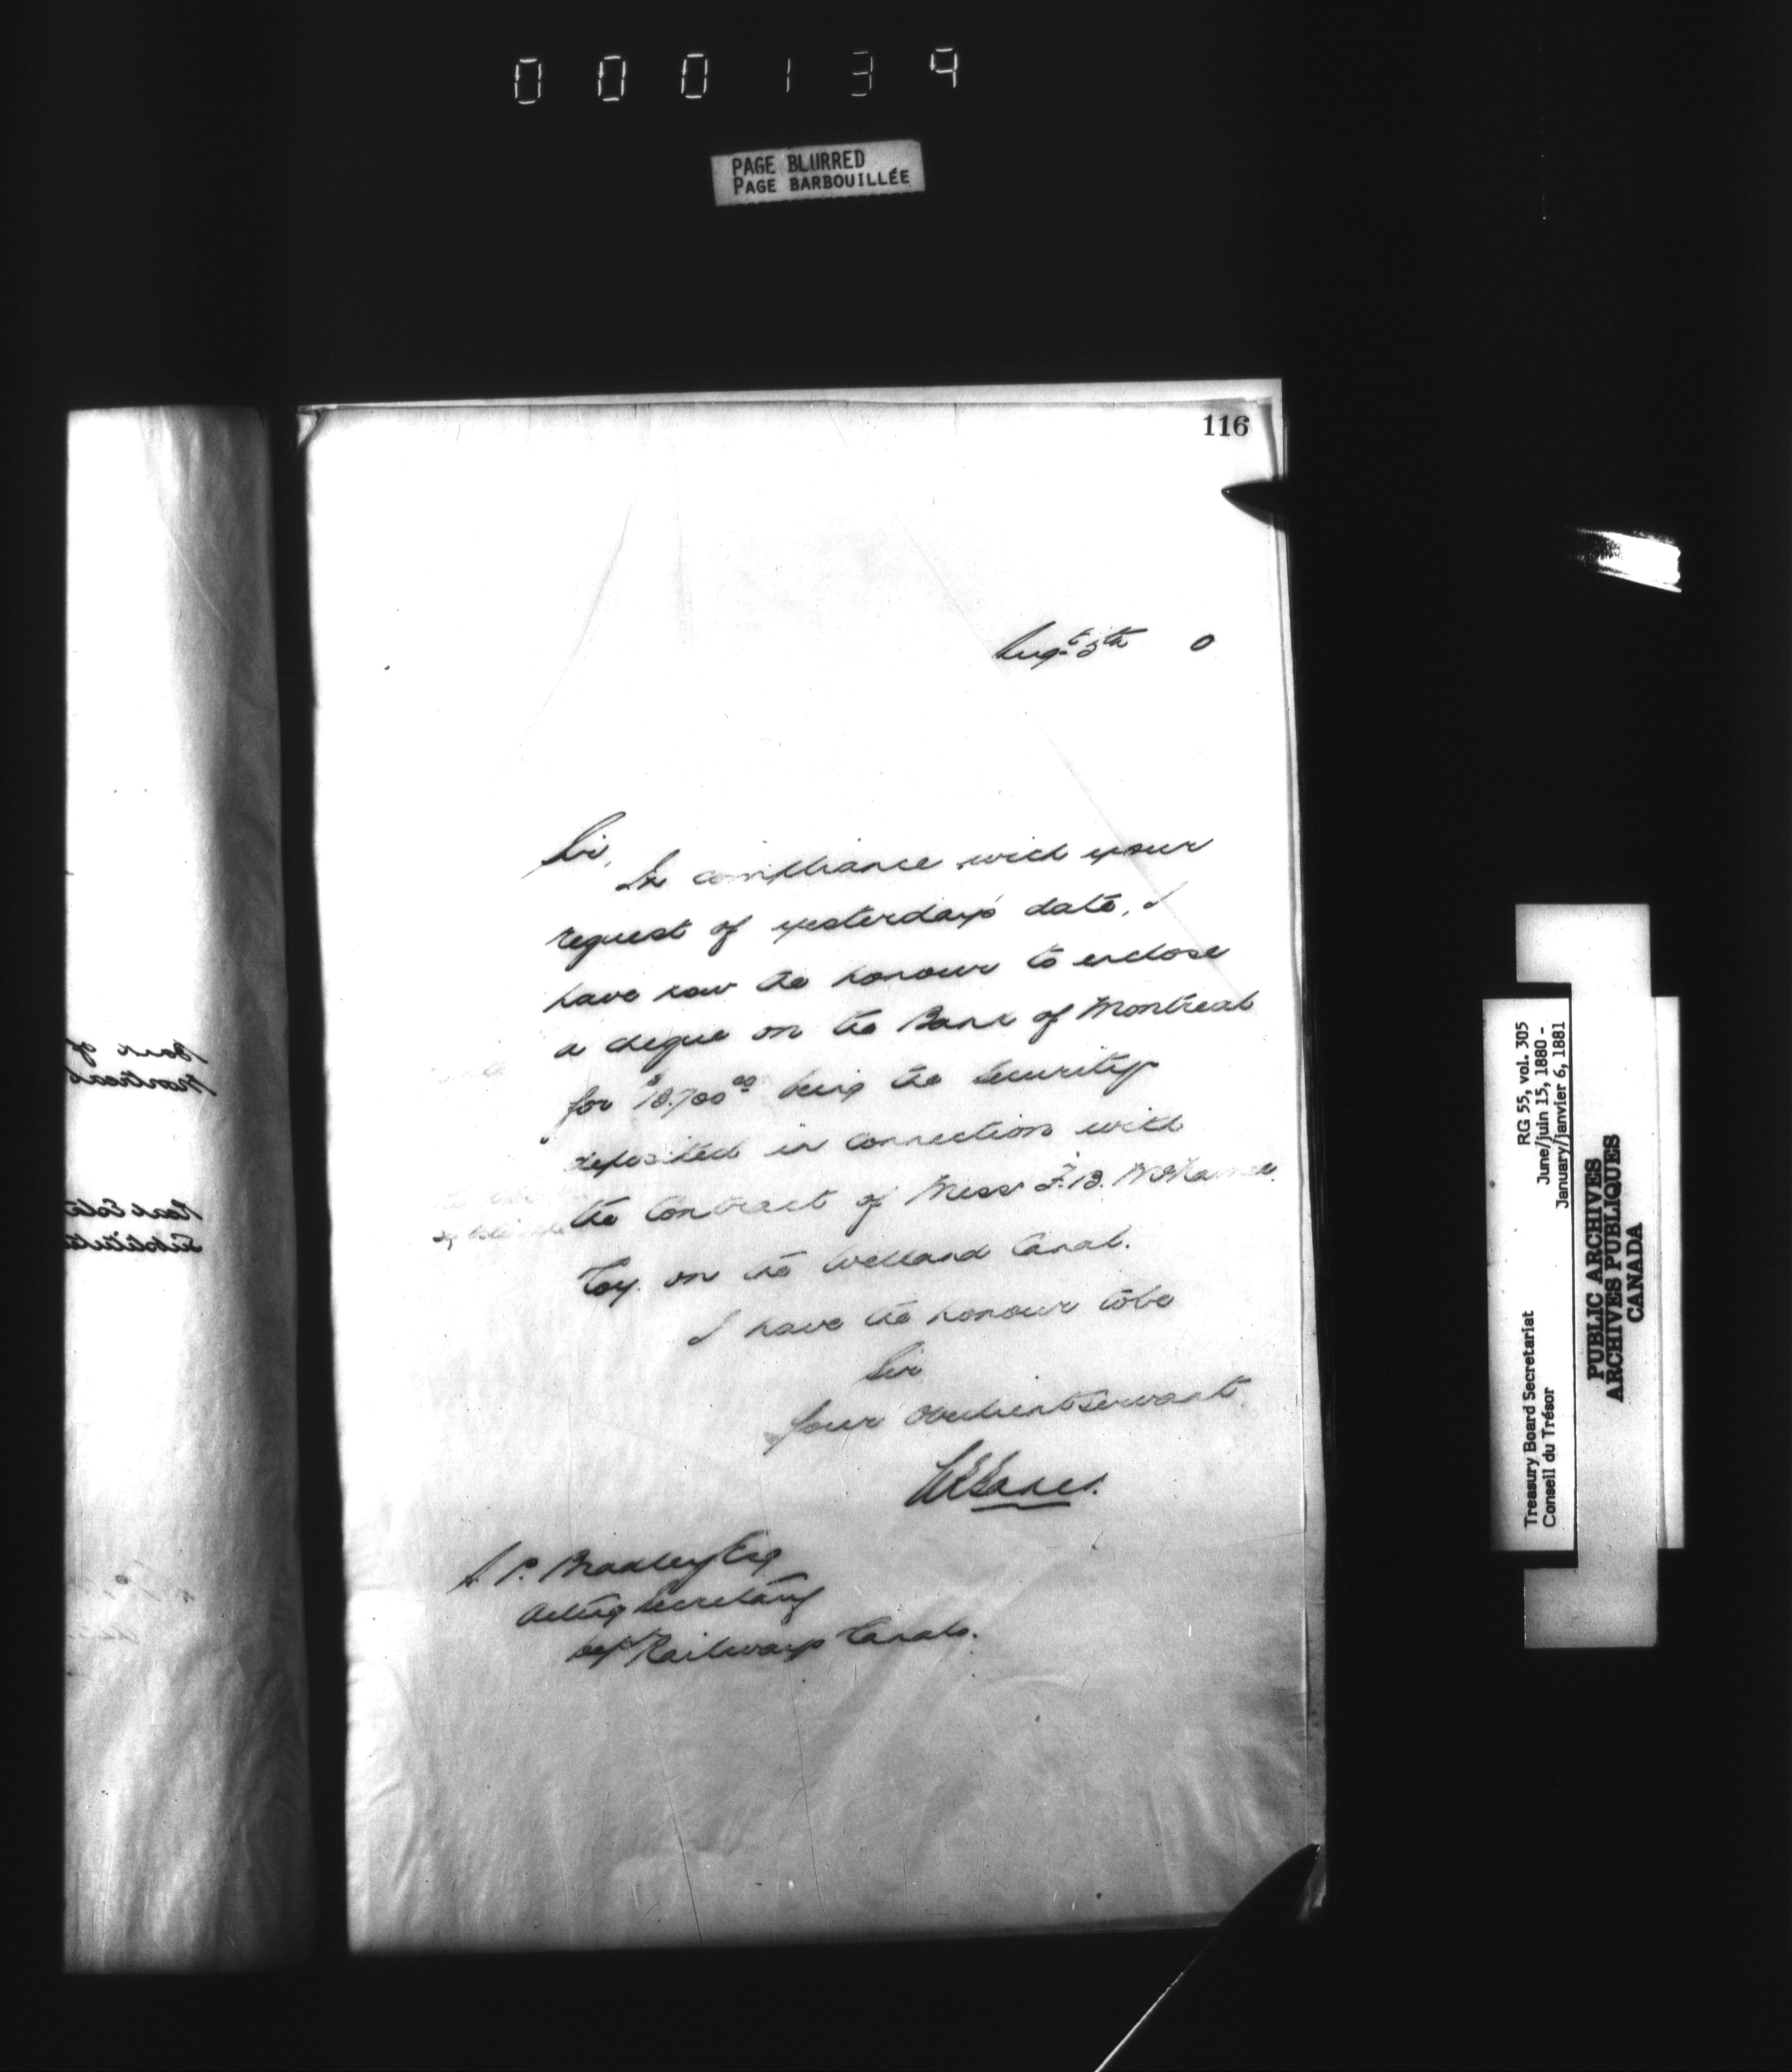 000139
PAGE BLURRED
PAGE BARBOUILLÉE
116
Augt 5th 0
Sir,
In compliance with your
request of yesterday's date, I
have now the honour to enclose
a cheque on the Bank of Montreal
for $18.700 00 being the Security
deposited in connection with
the Contract of Messr F. B. McNamee
Coy. on the Welland Canal.
I have the honour to be
Sir
Your Obedient Servant.
P. Bradley Esq
Acting Secretary
Dept Railways Canals.
Bank of
Montreal
Real Estate
Substitute
RG 55, vol. 305
June/juin 15, 1880 -
January/janvier 6, 1881
Treasury Board Secretariat
Conseil du Trésor
PUBLIC ARCHIVES
ARCHIVES PUBLIQUES
CANADA